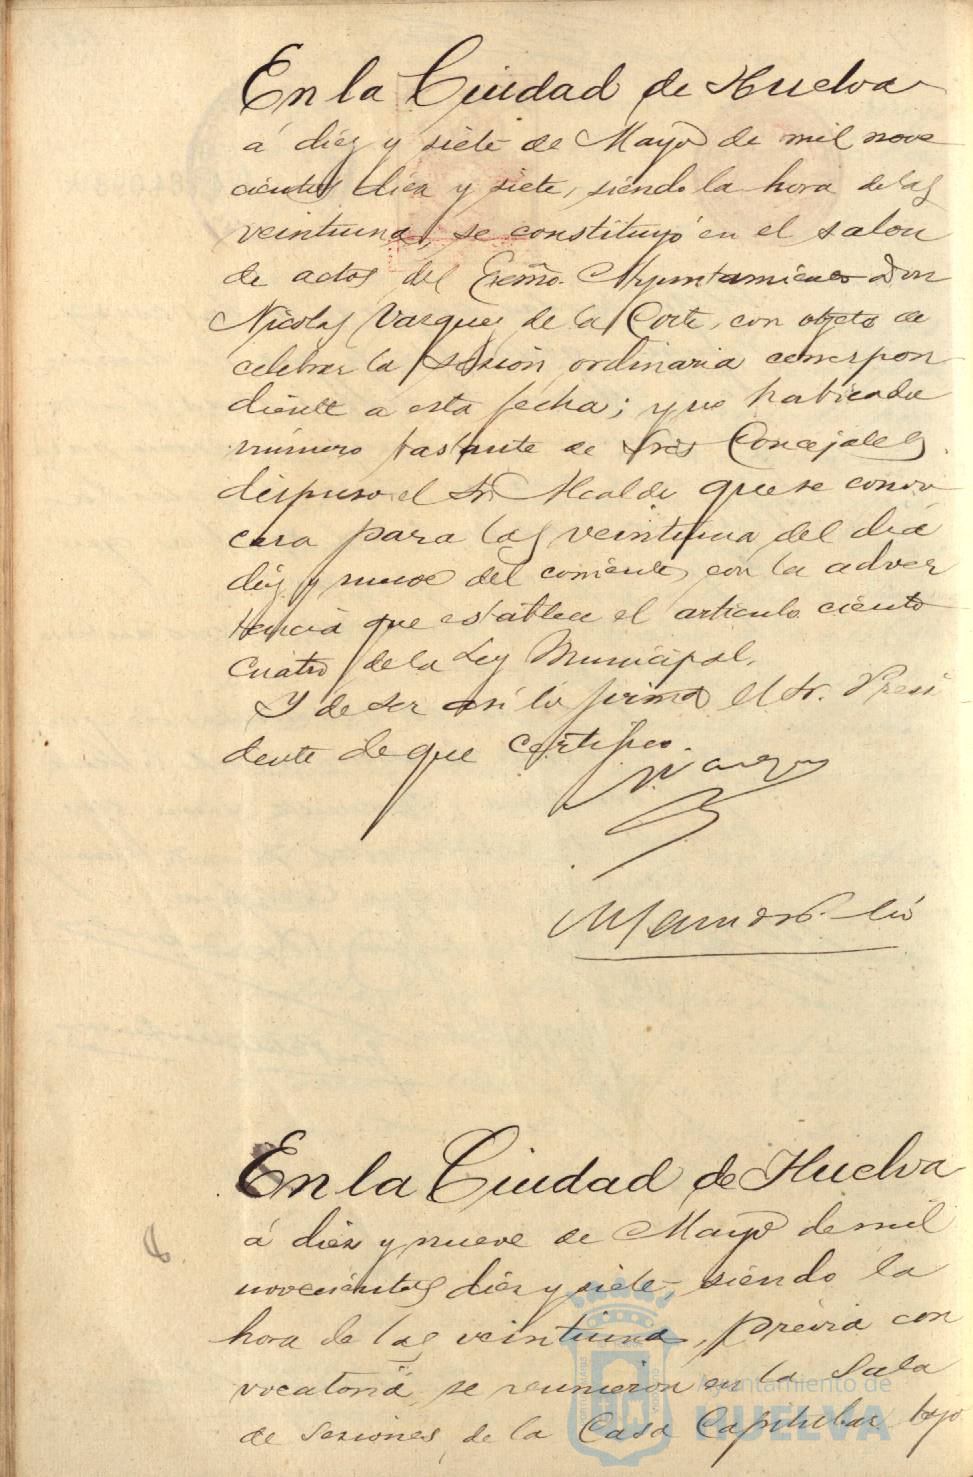 En la Ciudad de Huelva
á diez y siete de Mayo de mil nove
cientos diez y siete, siendo la hora de las
veintiuna, se constituyó en el salon
de actos del Excmo. Ayuntamiento Don
Nicolas Vazquez de la Corte, con objeto de
celebrar la sesión ordinaria correspon
diente a esta fecha; y no habiendo
número bastante de Sres Concejales
dispuso el Sr. Alcalde que se convo
cara para las veintiuna del dia
diez y nueve del corriente, con la adver
tencia que establece el articulo ciento
cuatro de la Ley Municipal.
Y de ser así lo firma el Sr. Presi
dente de que certifico.
N. Vazquez
En la Ciudad de Huelva
á diez y nueve de Mayo de mil
novecientos diez y siete, siendo la
hora de las veintiuna, prévia con
vocatoria se reunieron en la Sala
de Sesiones de la Casa Capitular bajo
Ayuntamiento de
HUELVA